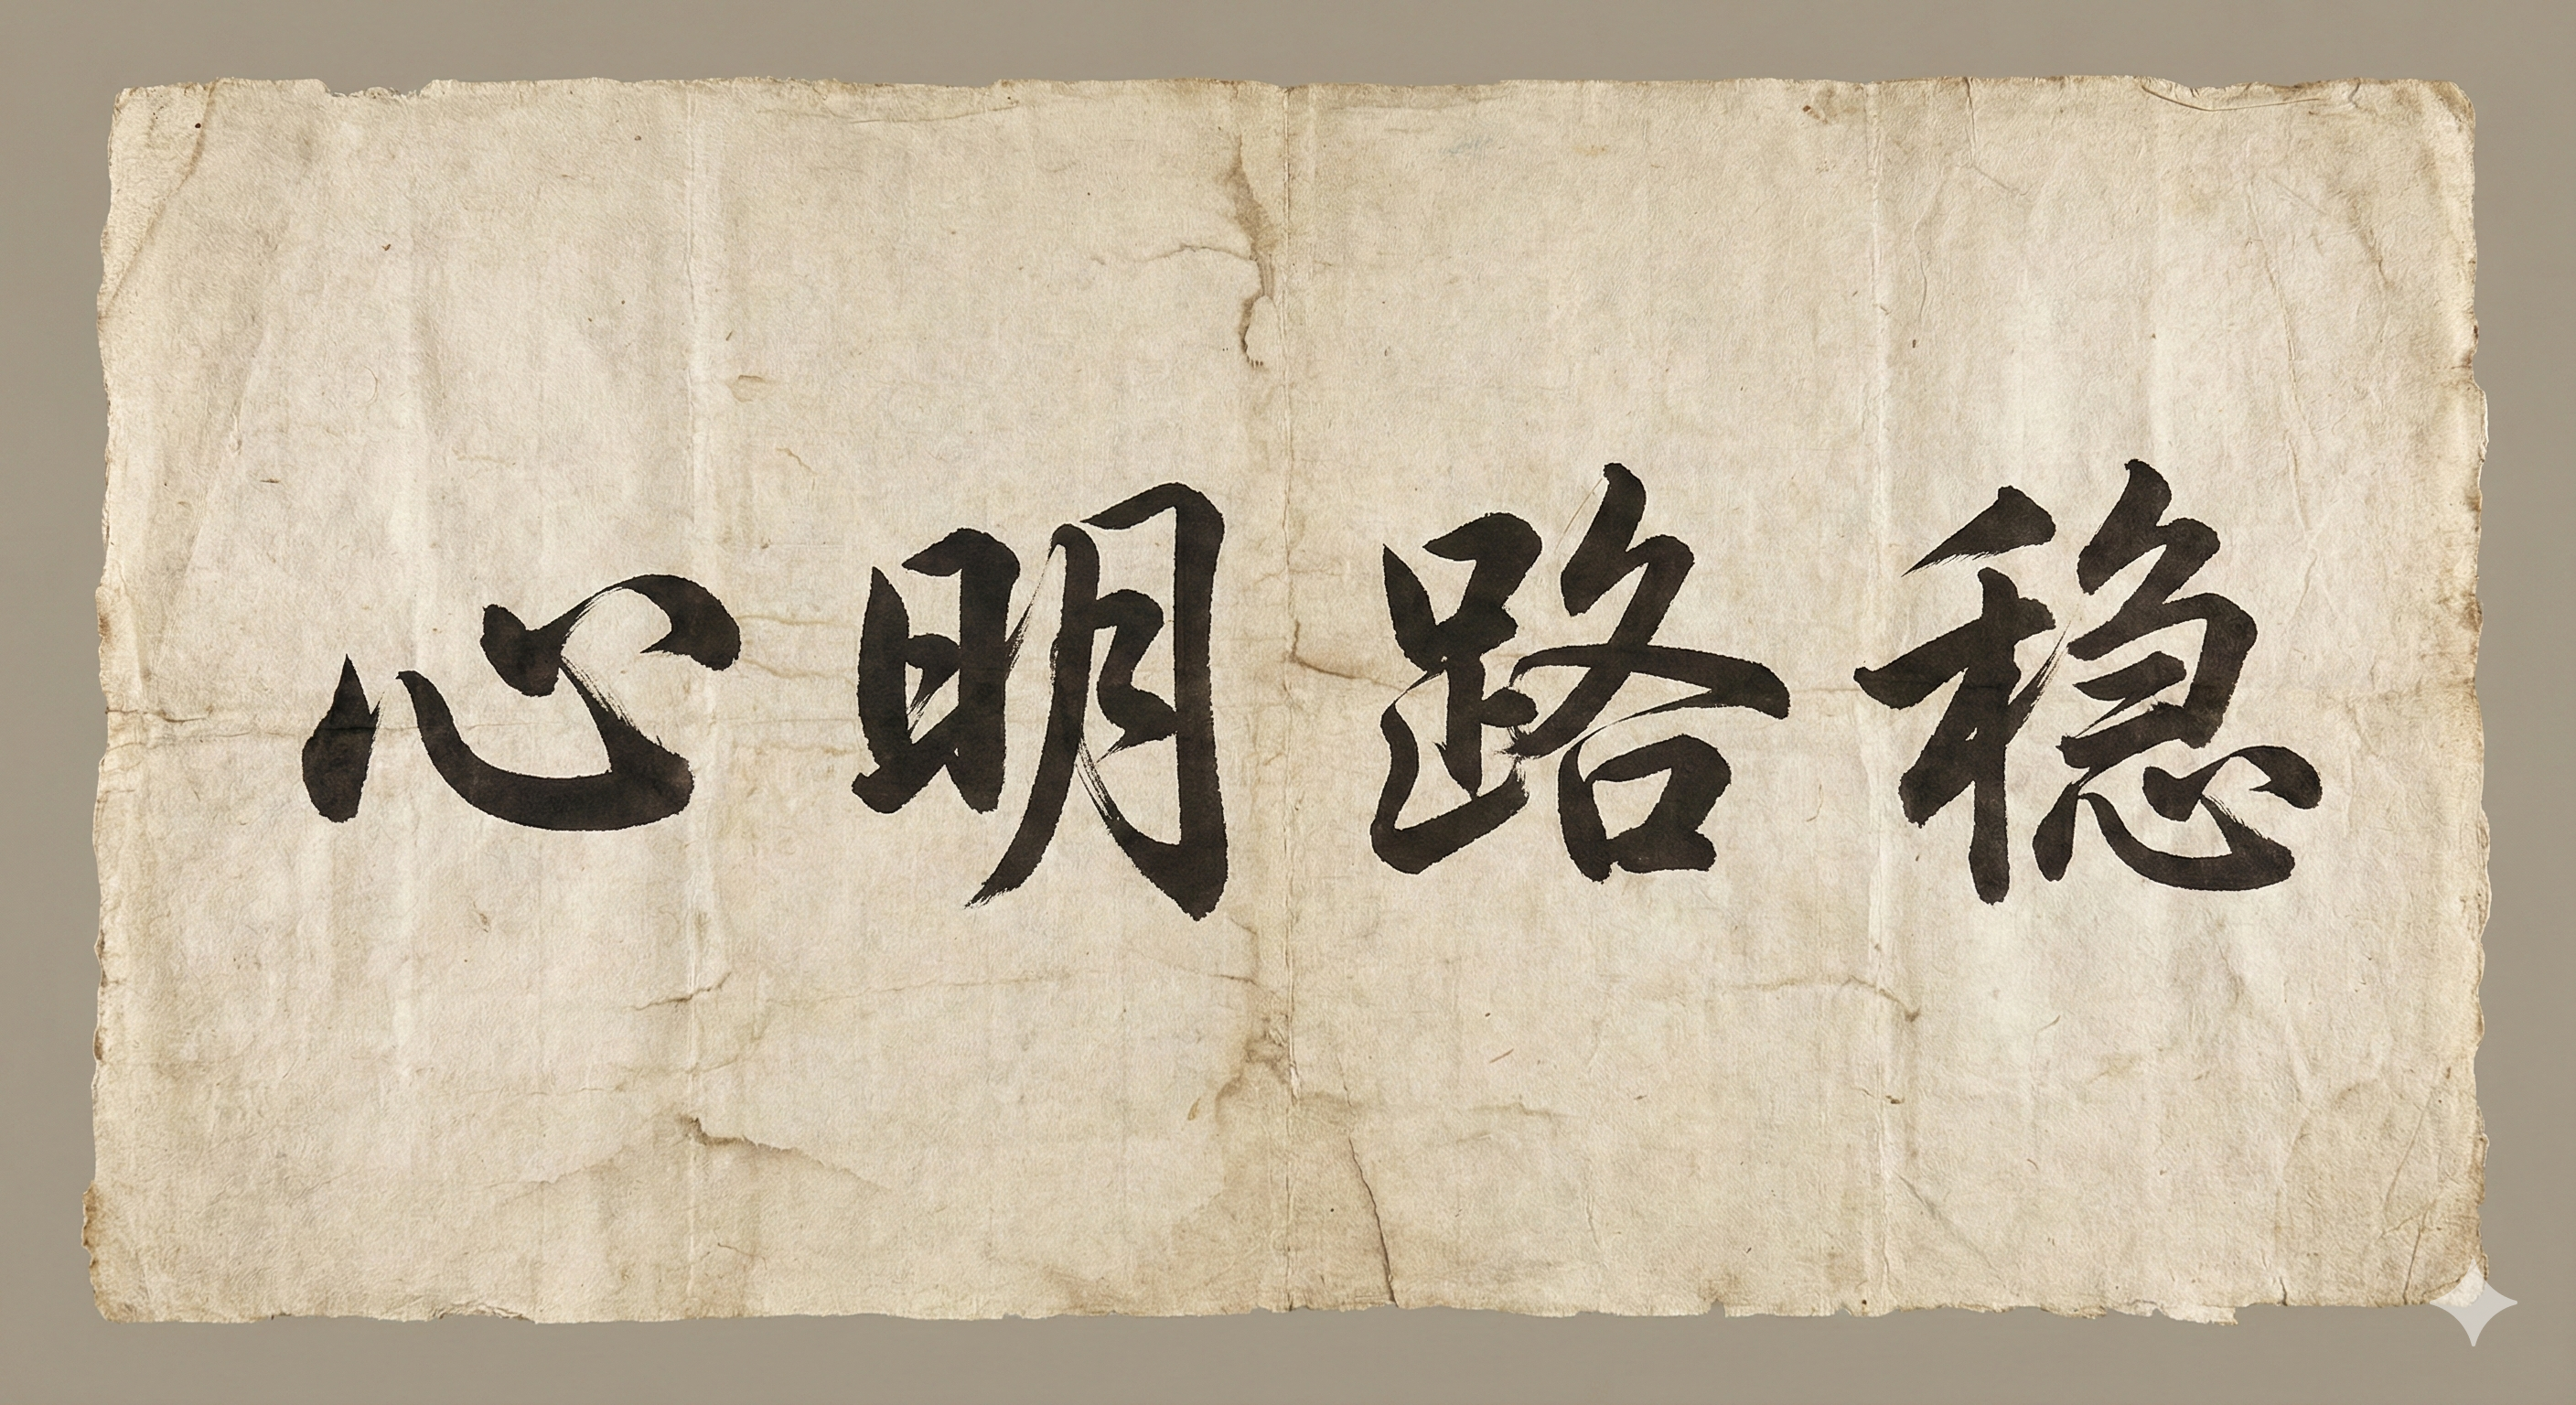 心明路稳